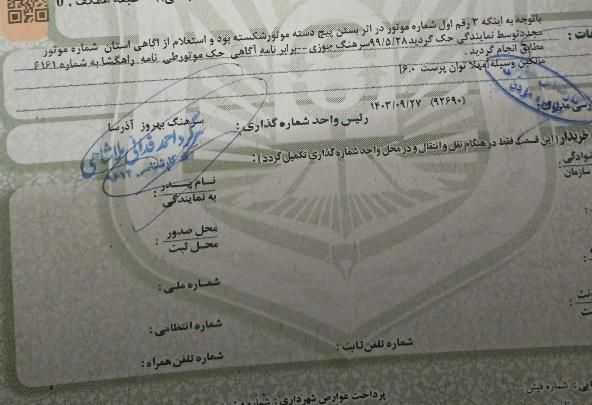 باتوجه به اینکه ۳ رقم اول شماره موتور در اثر بستن پیچ دسته موتورشکسته بود و استعلام از آگاهی استان شماره موتور
مجددتوسط نمایندگی حک گردید۹۹/۵/۲۸سرهنگ بیوزی --برابر نامه آگاهی حک موتورطی نامه راهگشا به شماره ۶۱۶۱
مطابق انجام گردید .
مالکین وسیله توان پرست ۶.
(۹۲۶۹۰) ۱۴۰۳/۰۹/۲۷
رئیس واحد شماره گذاری :
سرهنگ بهروز آذرسا
خریدار (این قسمت فقط در هنگام نقل و انتقال و در محل واحد شماره گذاری تکمیل گردد) :
نام پدر :
به نمایندگی
سازمان
محل صدور :
محل ثبت
شماره ملی :
شماره انتظامی :
شماره تلفن ثابت :
شماره تلفن همراه :
پرداخت عوارض شهرداری :
شماره فیش :